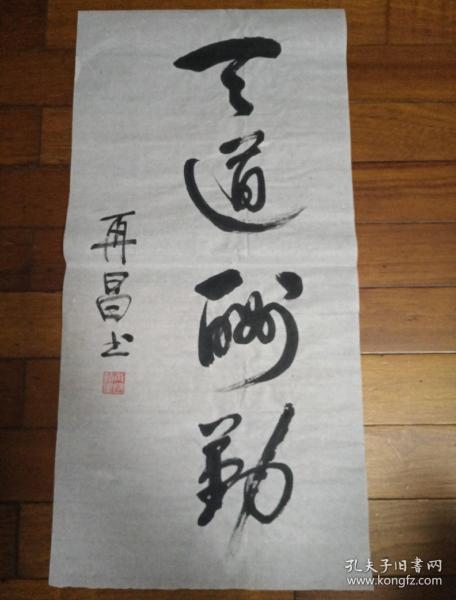 天道酬勤
再昌书
孔夫子旧書网
www.kongfz.com